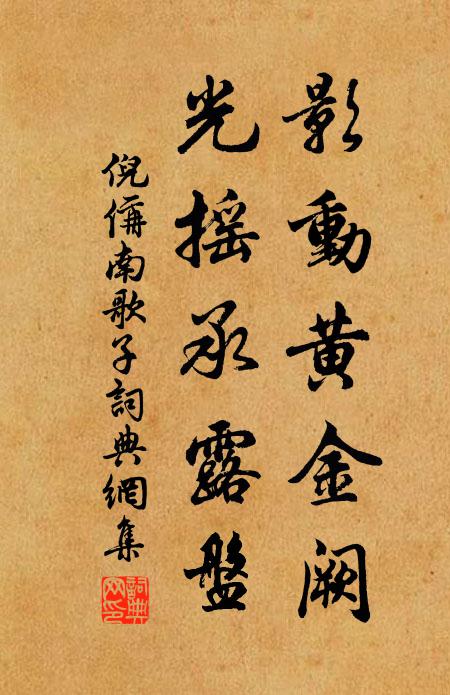 影動黃金闕
光搖承露盤
倪偁南歌子詞典網集
詞典網印